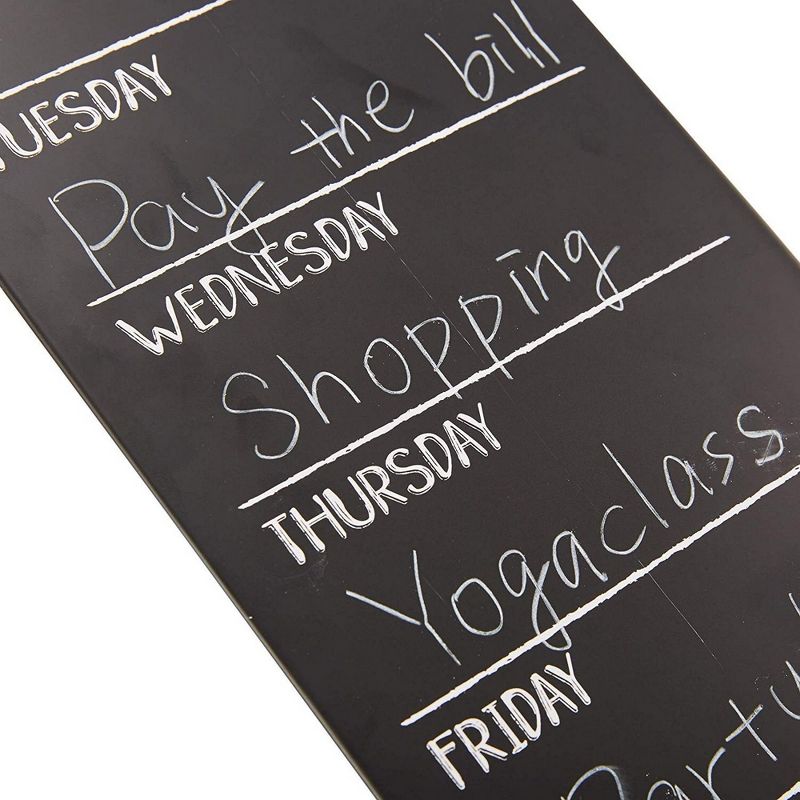 TUESDAY
Pay the bill
WEDNESDAY
Shopping
THURSDAY
Yogaclass
FRIDAY
Party